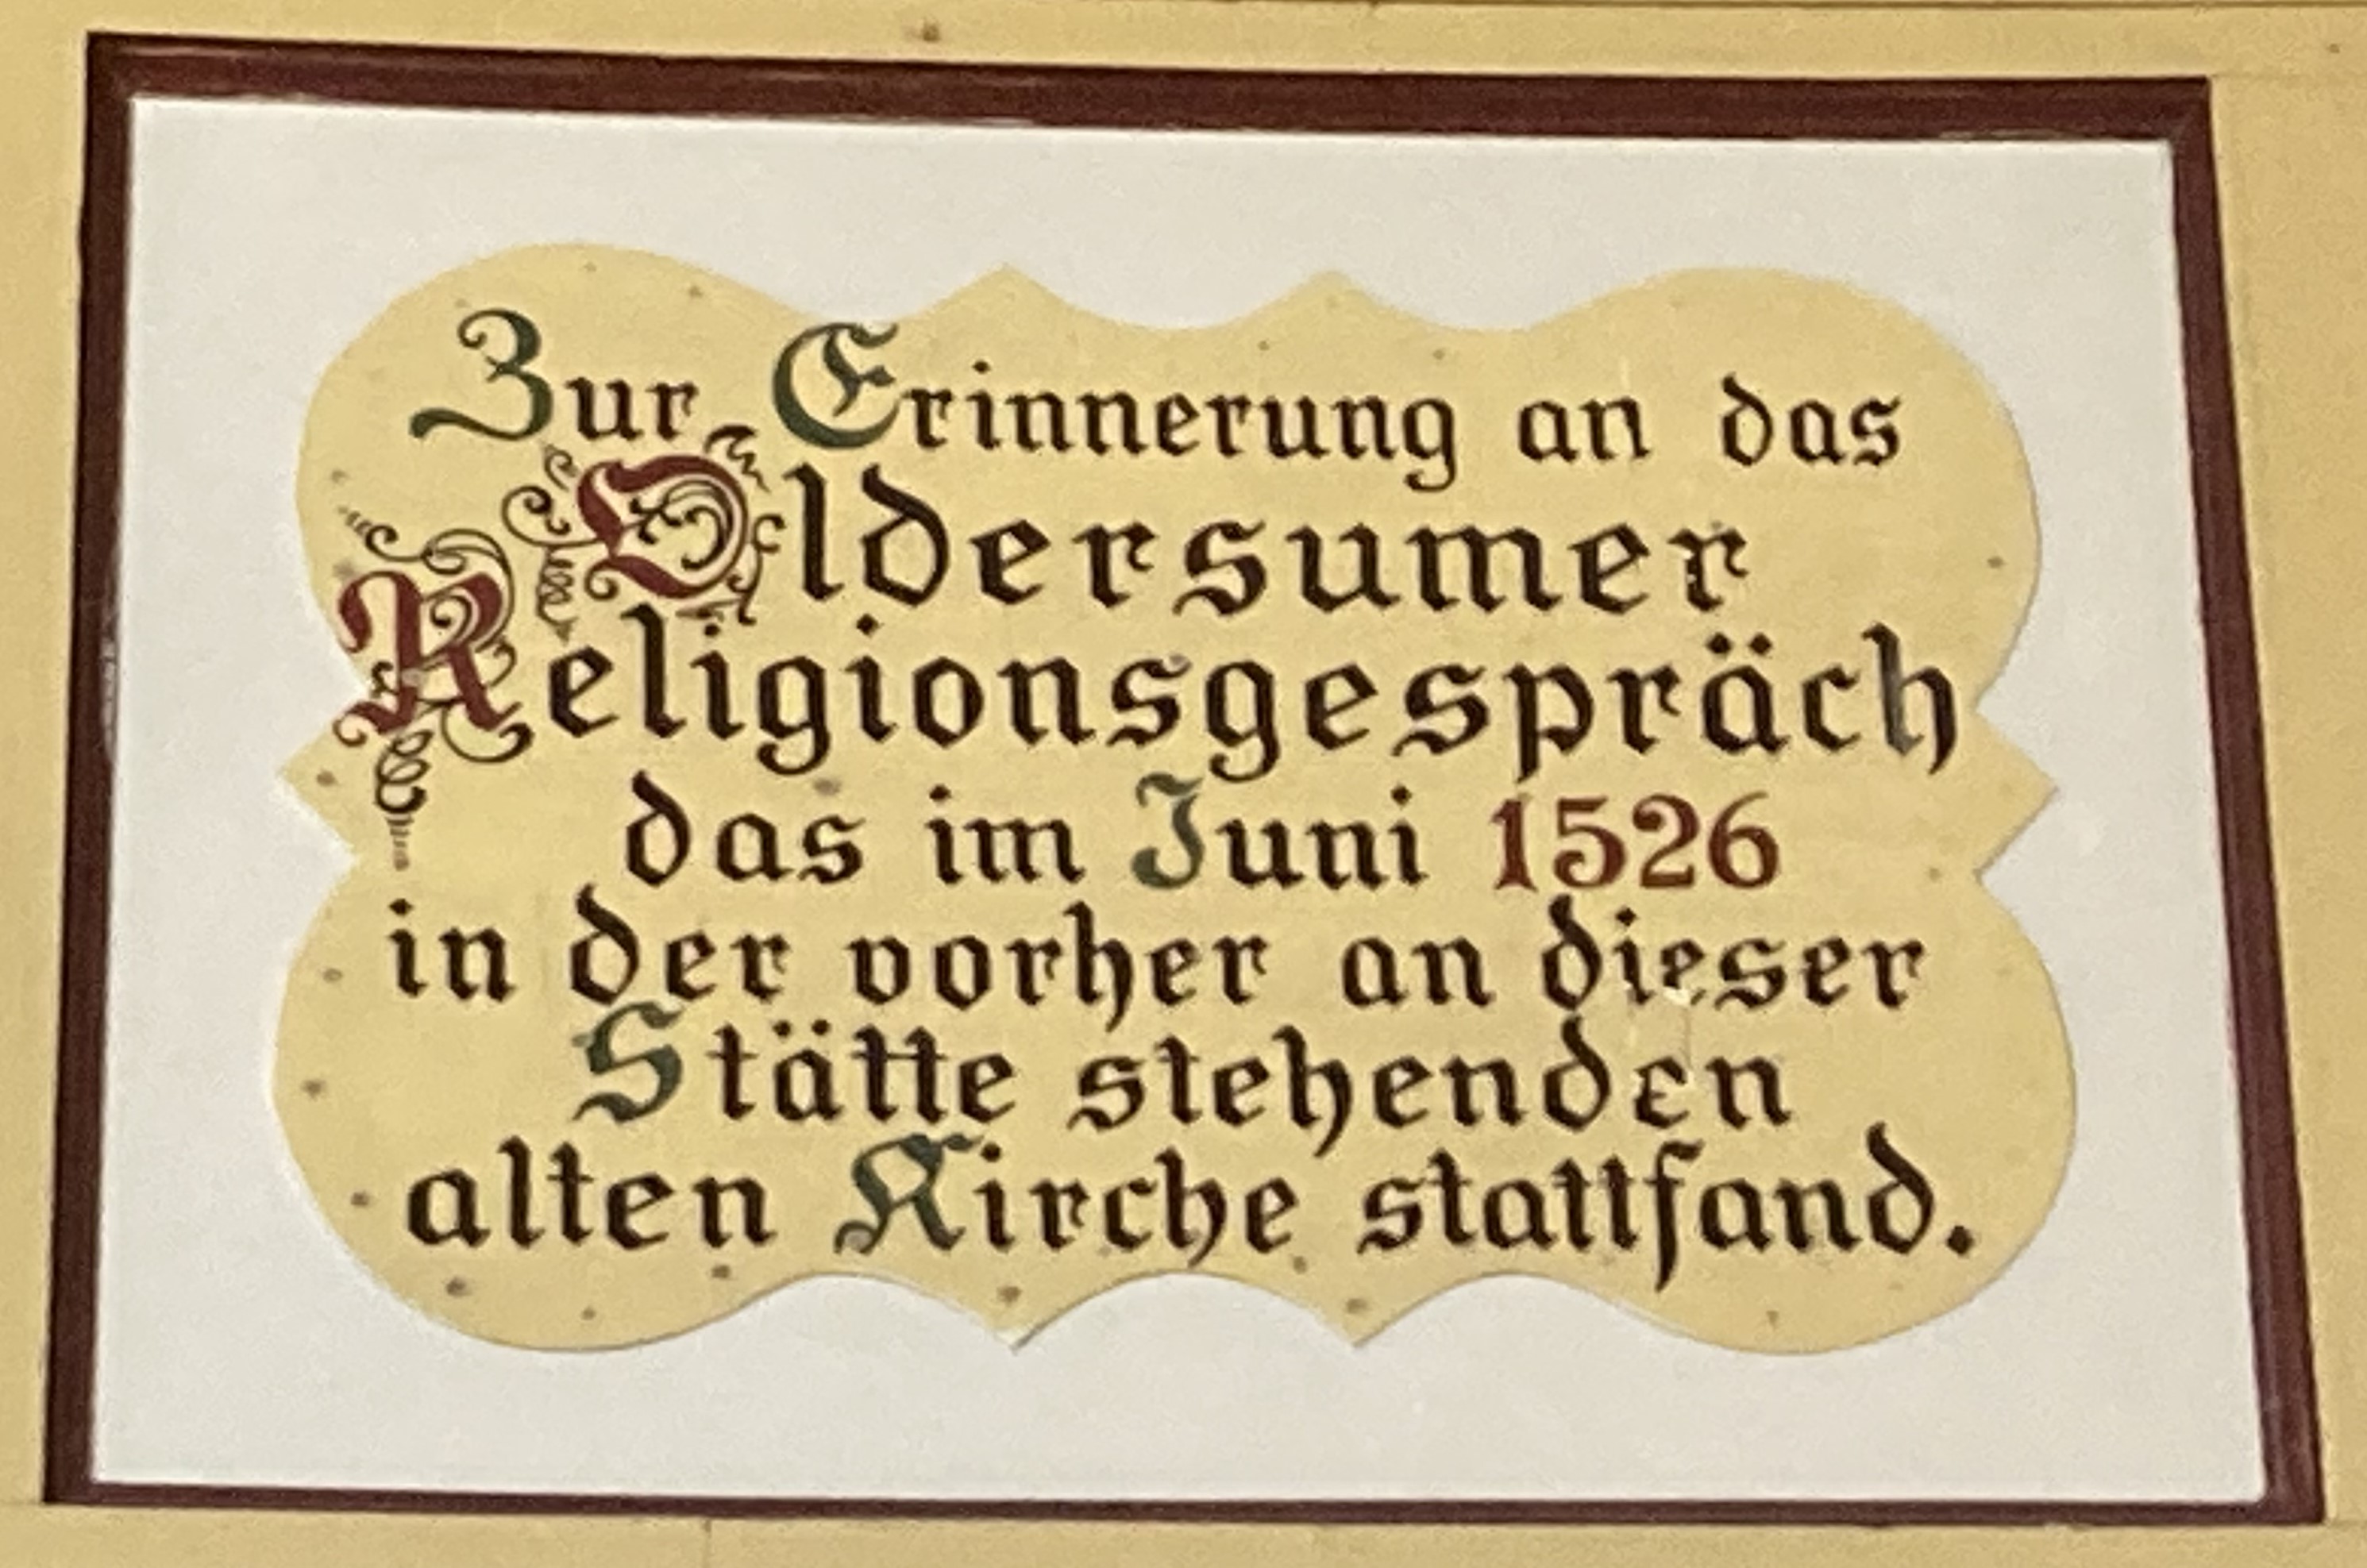 Zur Erinnerung an das
Oldersumer
Religionsgespräch
das im Juni 1526
in der vorher an dieser
Stätte stehenden
alten Kirche stattfand.